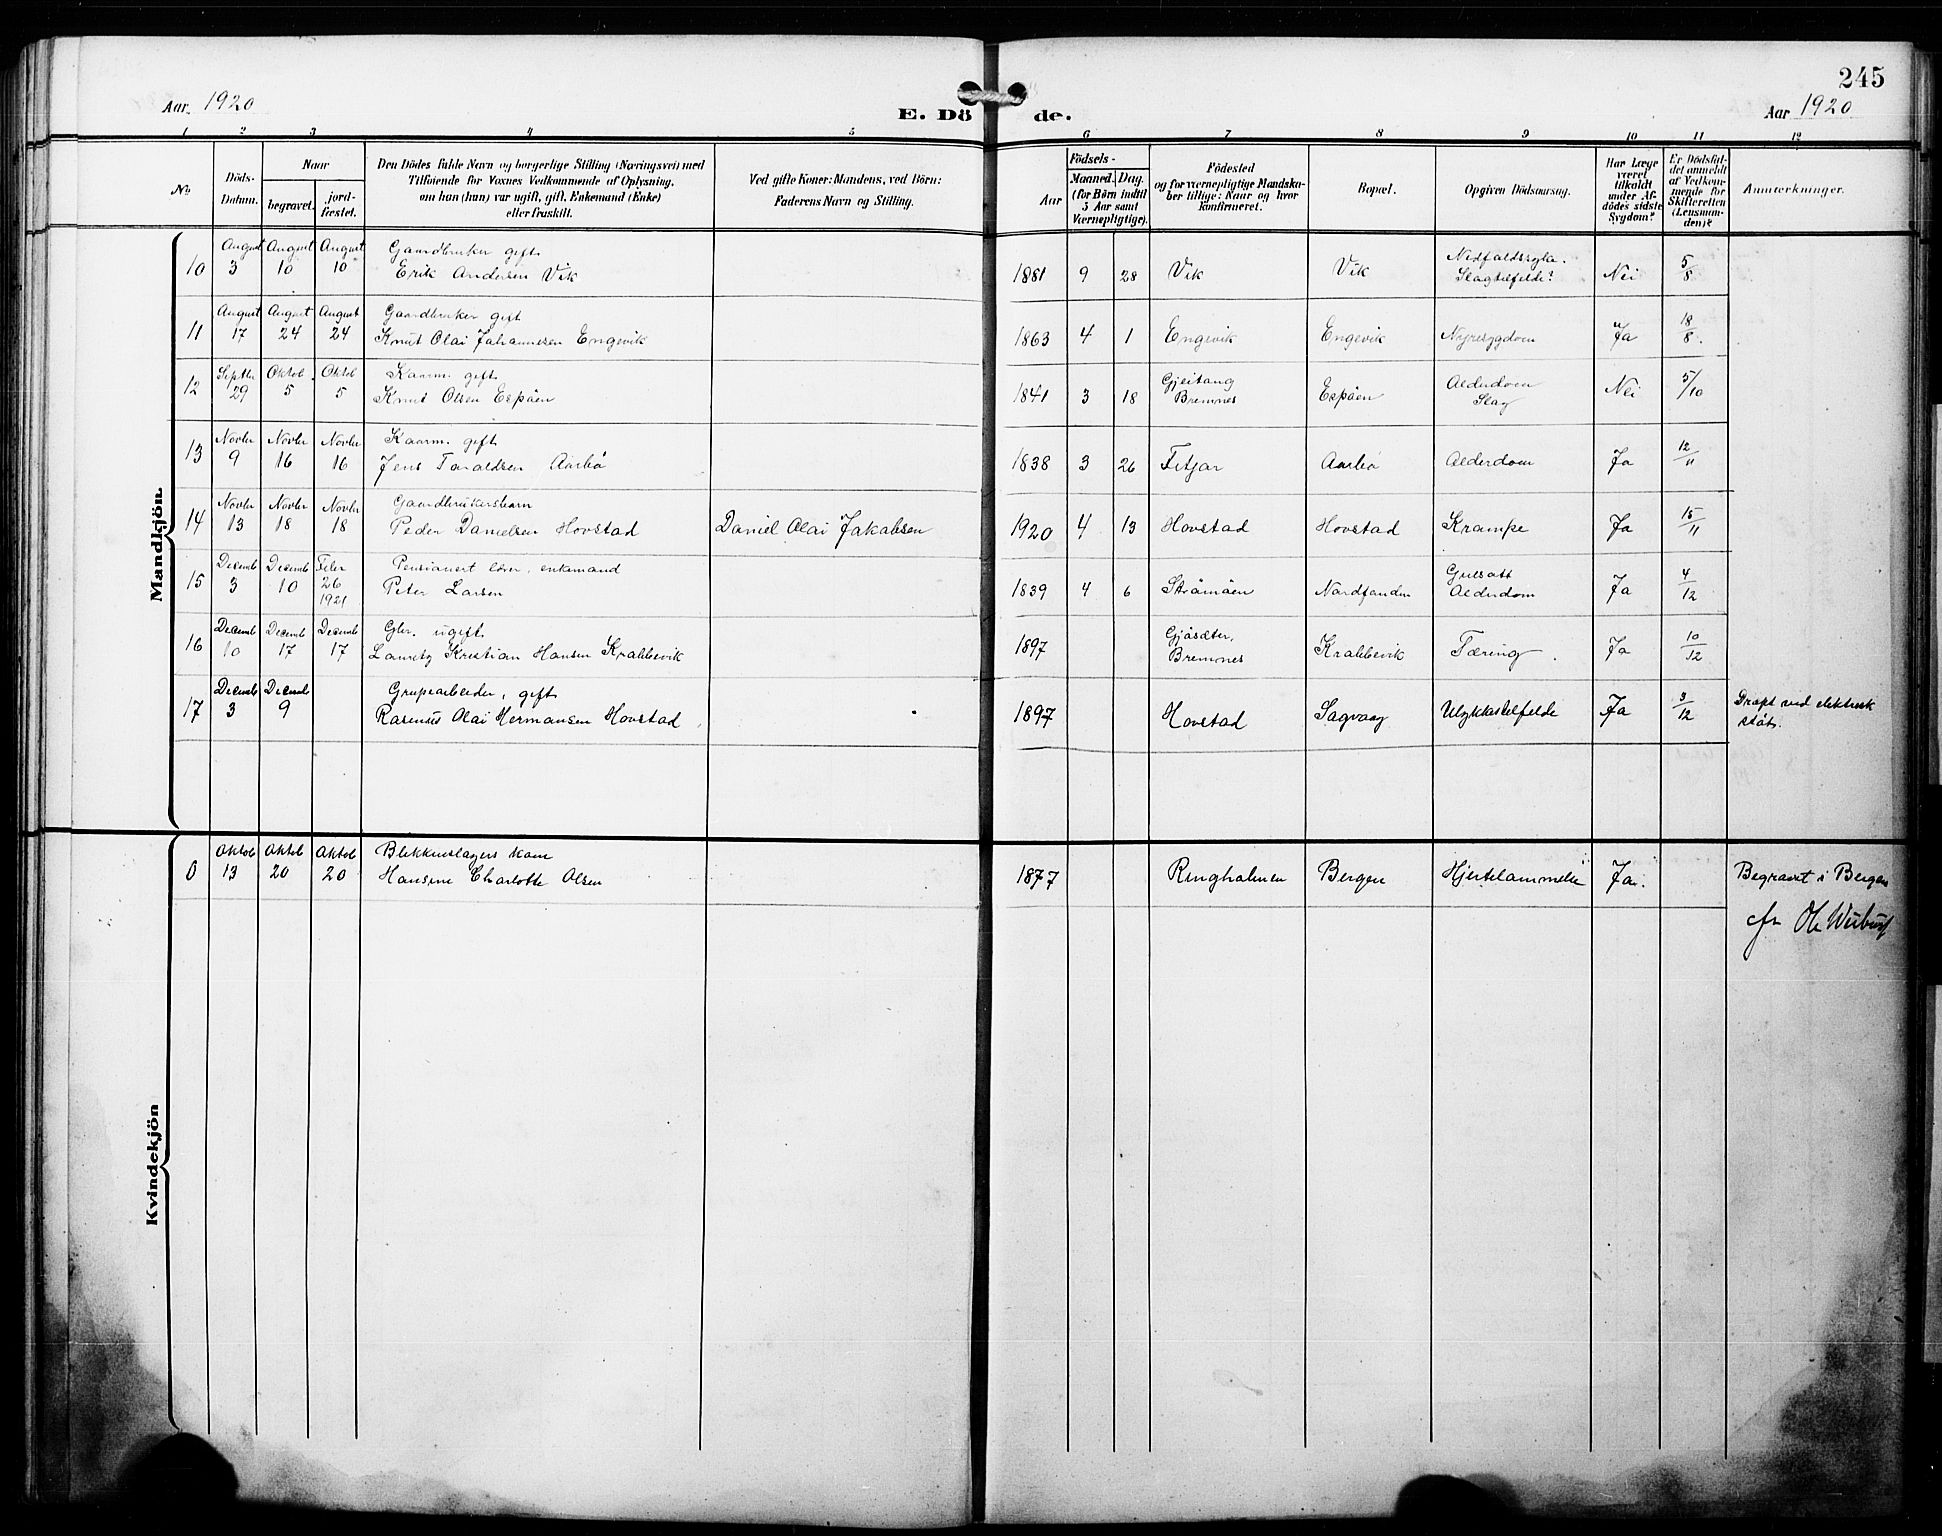 245
Aar 1920
E. Dö
de.
Aar 1920
1 2 3 4 5 6 7 8 9 10 11 12
No.
Döds-
Datum.
Naar
begravet.
jord-
fæstet.
Den Dödes fulde Navn og borgerlige Stilling (Næringsvei) med
Tilføiende for Voxnes Vedkommende af Oplysning,
om han (hun) var ugift, gift, Enkemand (Enke)
eller fraskilt.
Ved gifte Koner: Mandens, ved Börn:
Faderens Navn og Stilling.
Födsels-
Aar
Maaned. Dag.
(for Börn indtil
5 Aar samt
Værnepligtige).
Födested
og for værnepligtige Mandska-
ber tillige: Naar og hvor
konfirmeret.
Bopæl.
Opgiven Dödsaarsag.
Har Læge
været
tilkaldt
under Af-
dödes sidste
Sygdom?
Er Dödsfal-
det anmeldt
af Vedkom-
mende for
Skifteretten
(Lensman-
den)?
Anmærkninger.
Mandkjön.
August August August Gaardbruker gift.
10 3 10 10 Erik Andersen Vik 1881 9 28 Vik Vik Slagtilfelde? Nei 5/8
August August August Gaardbruker gift
11 17 24 24 Knut Olai Johannesen Engevik 1863 4 1 Engevik Engevik Nyresygdom Ja 18/8.
Septbr Oktob. Oktob Kaarm. gift.
12 29 5 5 Knut Olsen Espöen 1841 3 18 Gjeitang Bremnes Espöen Alderdom Slag Nei 5/10
Novbr Novbr Novbr Kaarm. gift.
13 9 16 16 Jens Taraldsen Aarbö 1838 3 26 Fitjar Aarbö Alderdom Ja 12/11
Novbr Novbr Novbr Gaardbrukersbarn
14 13 18 18 Peder Danielsen Hovstad Daniel Olai Jakobsen 1920 4 13 Hovstad Hovstad Krampe Ja 15/11
Decemb Decemb Febr Pensionert lærer, enkemand
15 3 10 26 1921 Peter Larsen 1839 4 6 Strömöen Gulsott Alderdom Ja 4/12
Decemb Decemb Decemb Gbr. ugift.
16 10 17 17 Lauritz Kristian Hansen Krabbevik 1897 Gjösæter, Bremnes Krabbevik Tæring. Ja 10/12
Decemb Decemb Grupearbeider, gift
17 3 9 Rasmus Olai Hermansen Hovstad 1897 Hovstad Sagvaag Ulykkestilfelde Ja 3/12 Dræpt ved elektrisk
støt.
Kvindekjön
Oktob Oktob Oktob Blikkenslagers kone
0 13 20 20 Hansine Charlotte Olsen 1877 Ringholmen Bergen Hjertelammelse Ja. Begravet i Bergen
cfr